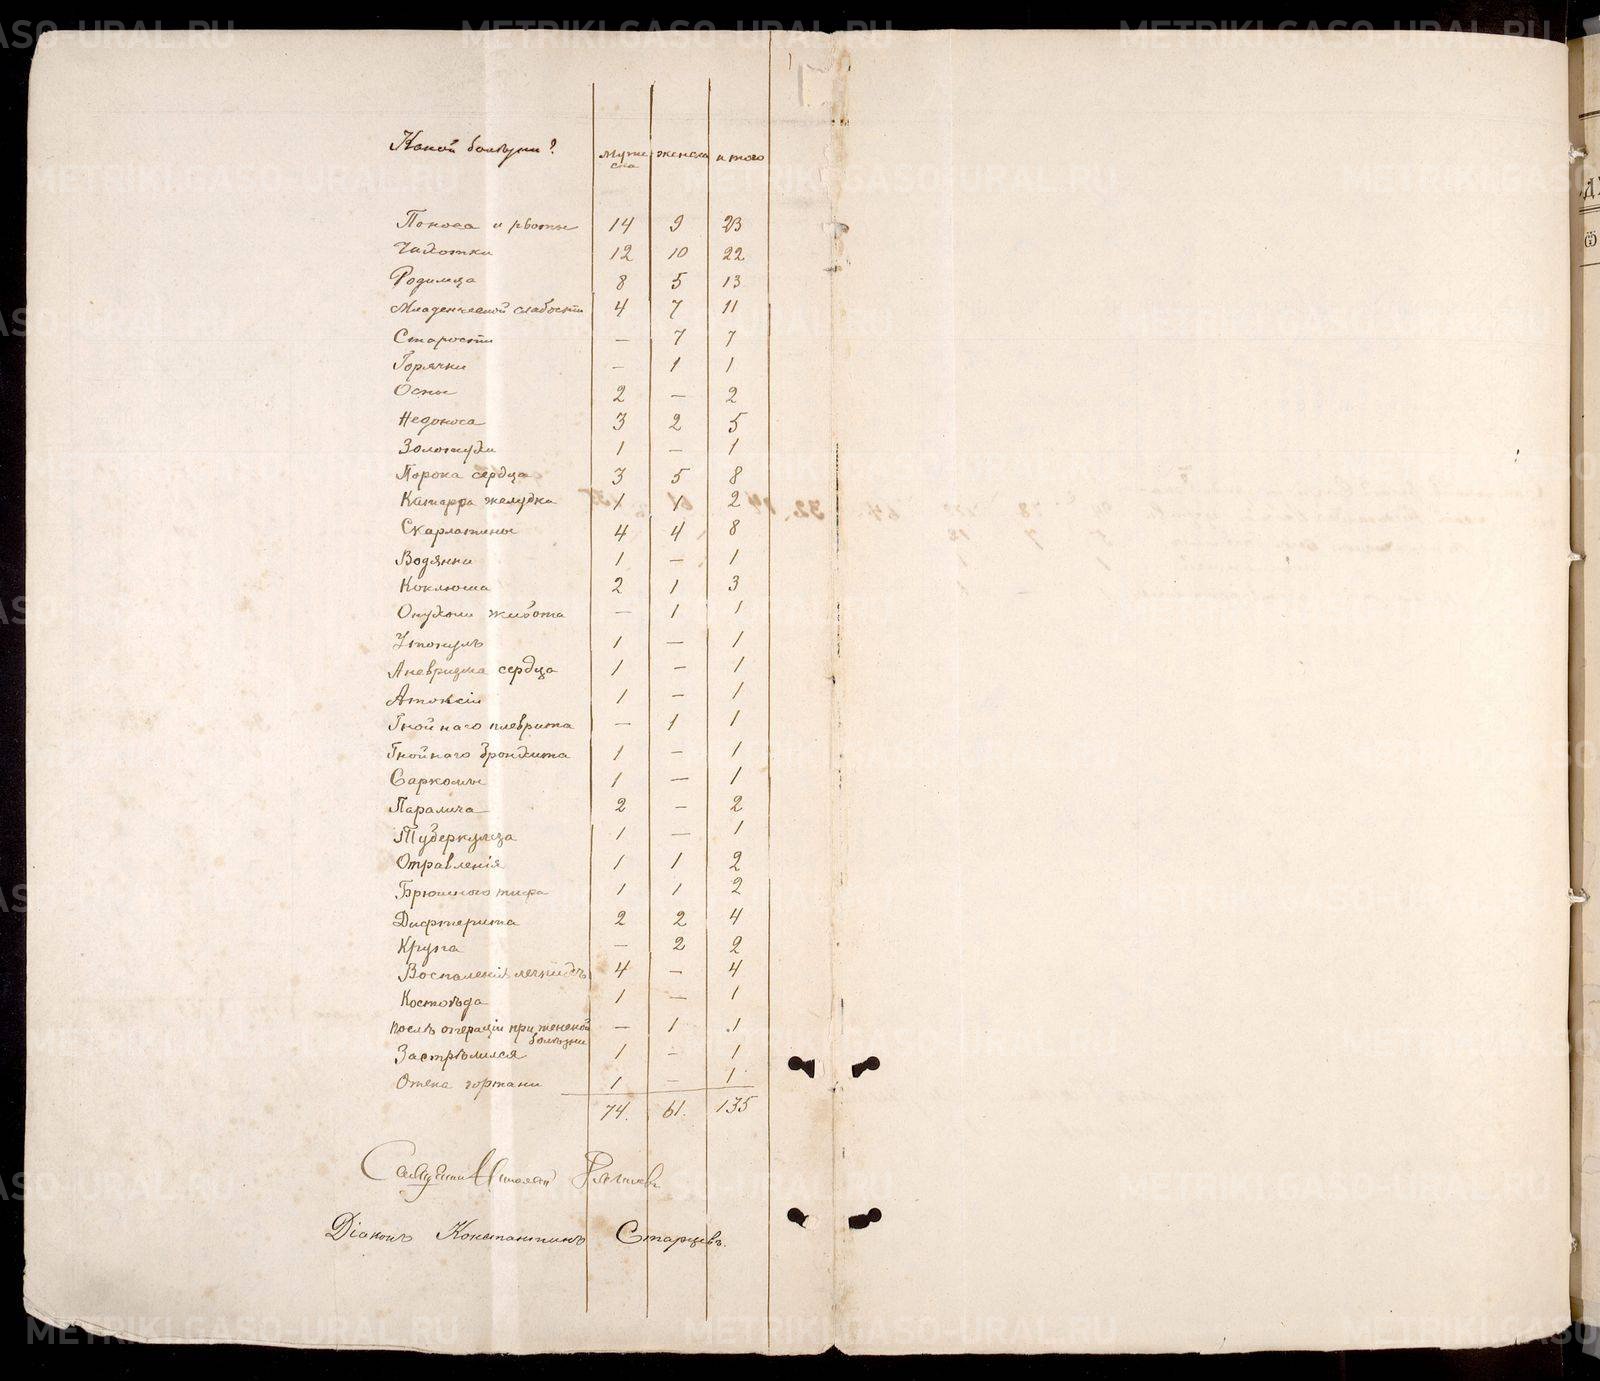 METRIKI.GASO-URAL.RU
Какой болѣзни? Муже ска женска итого
Поноса и рвоты 14 9 23
Чахотки 12 10 22
Родимца 8 5 13
Младенческой слабости 4 7 11
Старости — 7 7
Горячки — 1 1
Оспы 2 — 2
Недоноса 3 2 5
Золотухи 1 — 1
Порока сердца 3 5 8
Катарра желудка 1 1 2
Скарлатины 4 4 8
Водянки 1 — 1
Коклюша 2 1 3
Опухоли живота — 1 1
Утонулъ 1 — 1
Аневризма сердца 1 — 1
Атоксіи 1 — 1
Гнойнаго плеврита — 1 1
Гнойнаго бронхита 1 — 1
Саркомы 1 — 1
Паралича 2 — 2
Туберкулеза 1 — 1
Отравленія 1 1 2
Брюшного тифа 1 1 2
Дифтерита 2 2 4
Крупа — 2 2
Воспаленія легкихъ 4 — 4
Костоѣда 1 — 1
Послѣ операціи при женской болѣзни — 1 1
Застрѣлился 1 — 1
Отека гортани 1 — 1
74. 61. 135
Священникъ Николай
Діаконъ Константинъ Старцевъ.